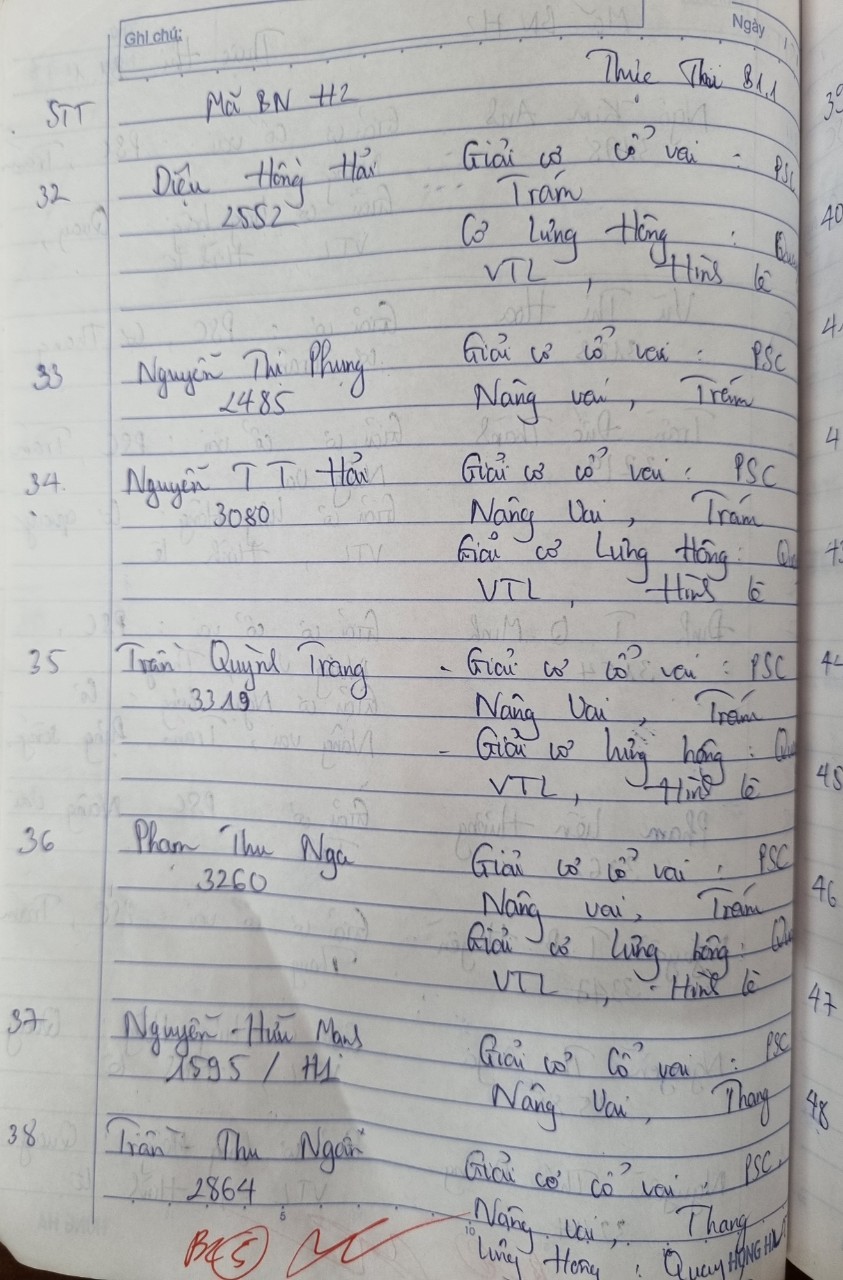 Ghi chú:
Ngày
STT Mã BN H2 Thực Thái B1.1
32 Diệu Hồng Hải Giải cơ cổ vai : PSC
2552 Trám
Cơ lưng Hông :
VTL , Hình lê
33 Nguyễn Thị Phụng Giải cơ cổ vai : PSC
2485 Nâng vai , Trám
34. Nguyễn T T Hải Giải cơ cổ vai : PSC
3080 Nâng Vai , Trám
Giải cơ Lưng Hông :
VTL , Hình lê
35 Trần Quỳnh Trang - Giải cơ cổ vai : PSC
3319 Nâng Vai , Trám
- Giải cơ lưng hông :
VTL , Hình lê
36 Phạm Thu Nga Giải cơ cổ vai : PSC
3260 Nâng vai , Trám
Giải cơ lưng hông :
VTL , Hình lê
37 Nguyễn Hữu Mạnh Giải cơ Cổ vai : PSC
1595 / H1 Nâng Vai , Thang
38 Trần Thu Ngân Giải cơ cổ vai : PSC.
2864 Nâng vai , Thang
Lưng Hông : Quay
HONG HA
6
10
40
44
45
46
47
48